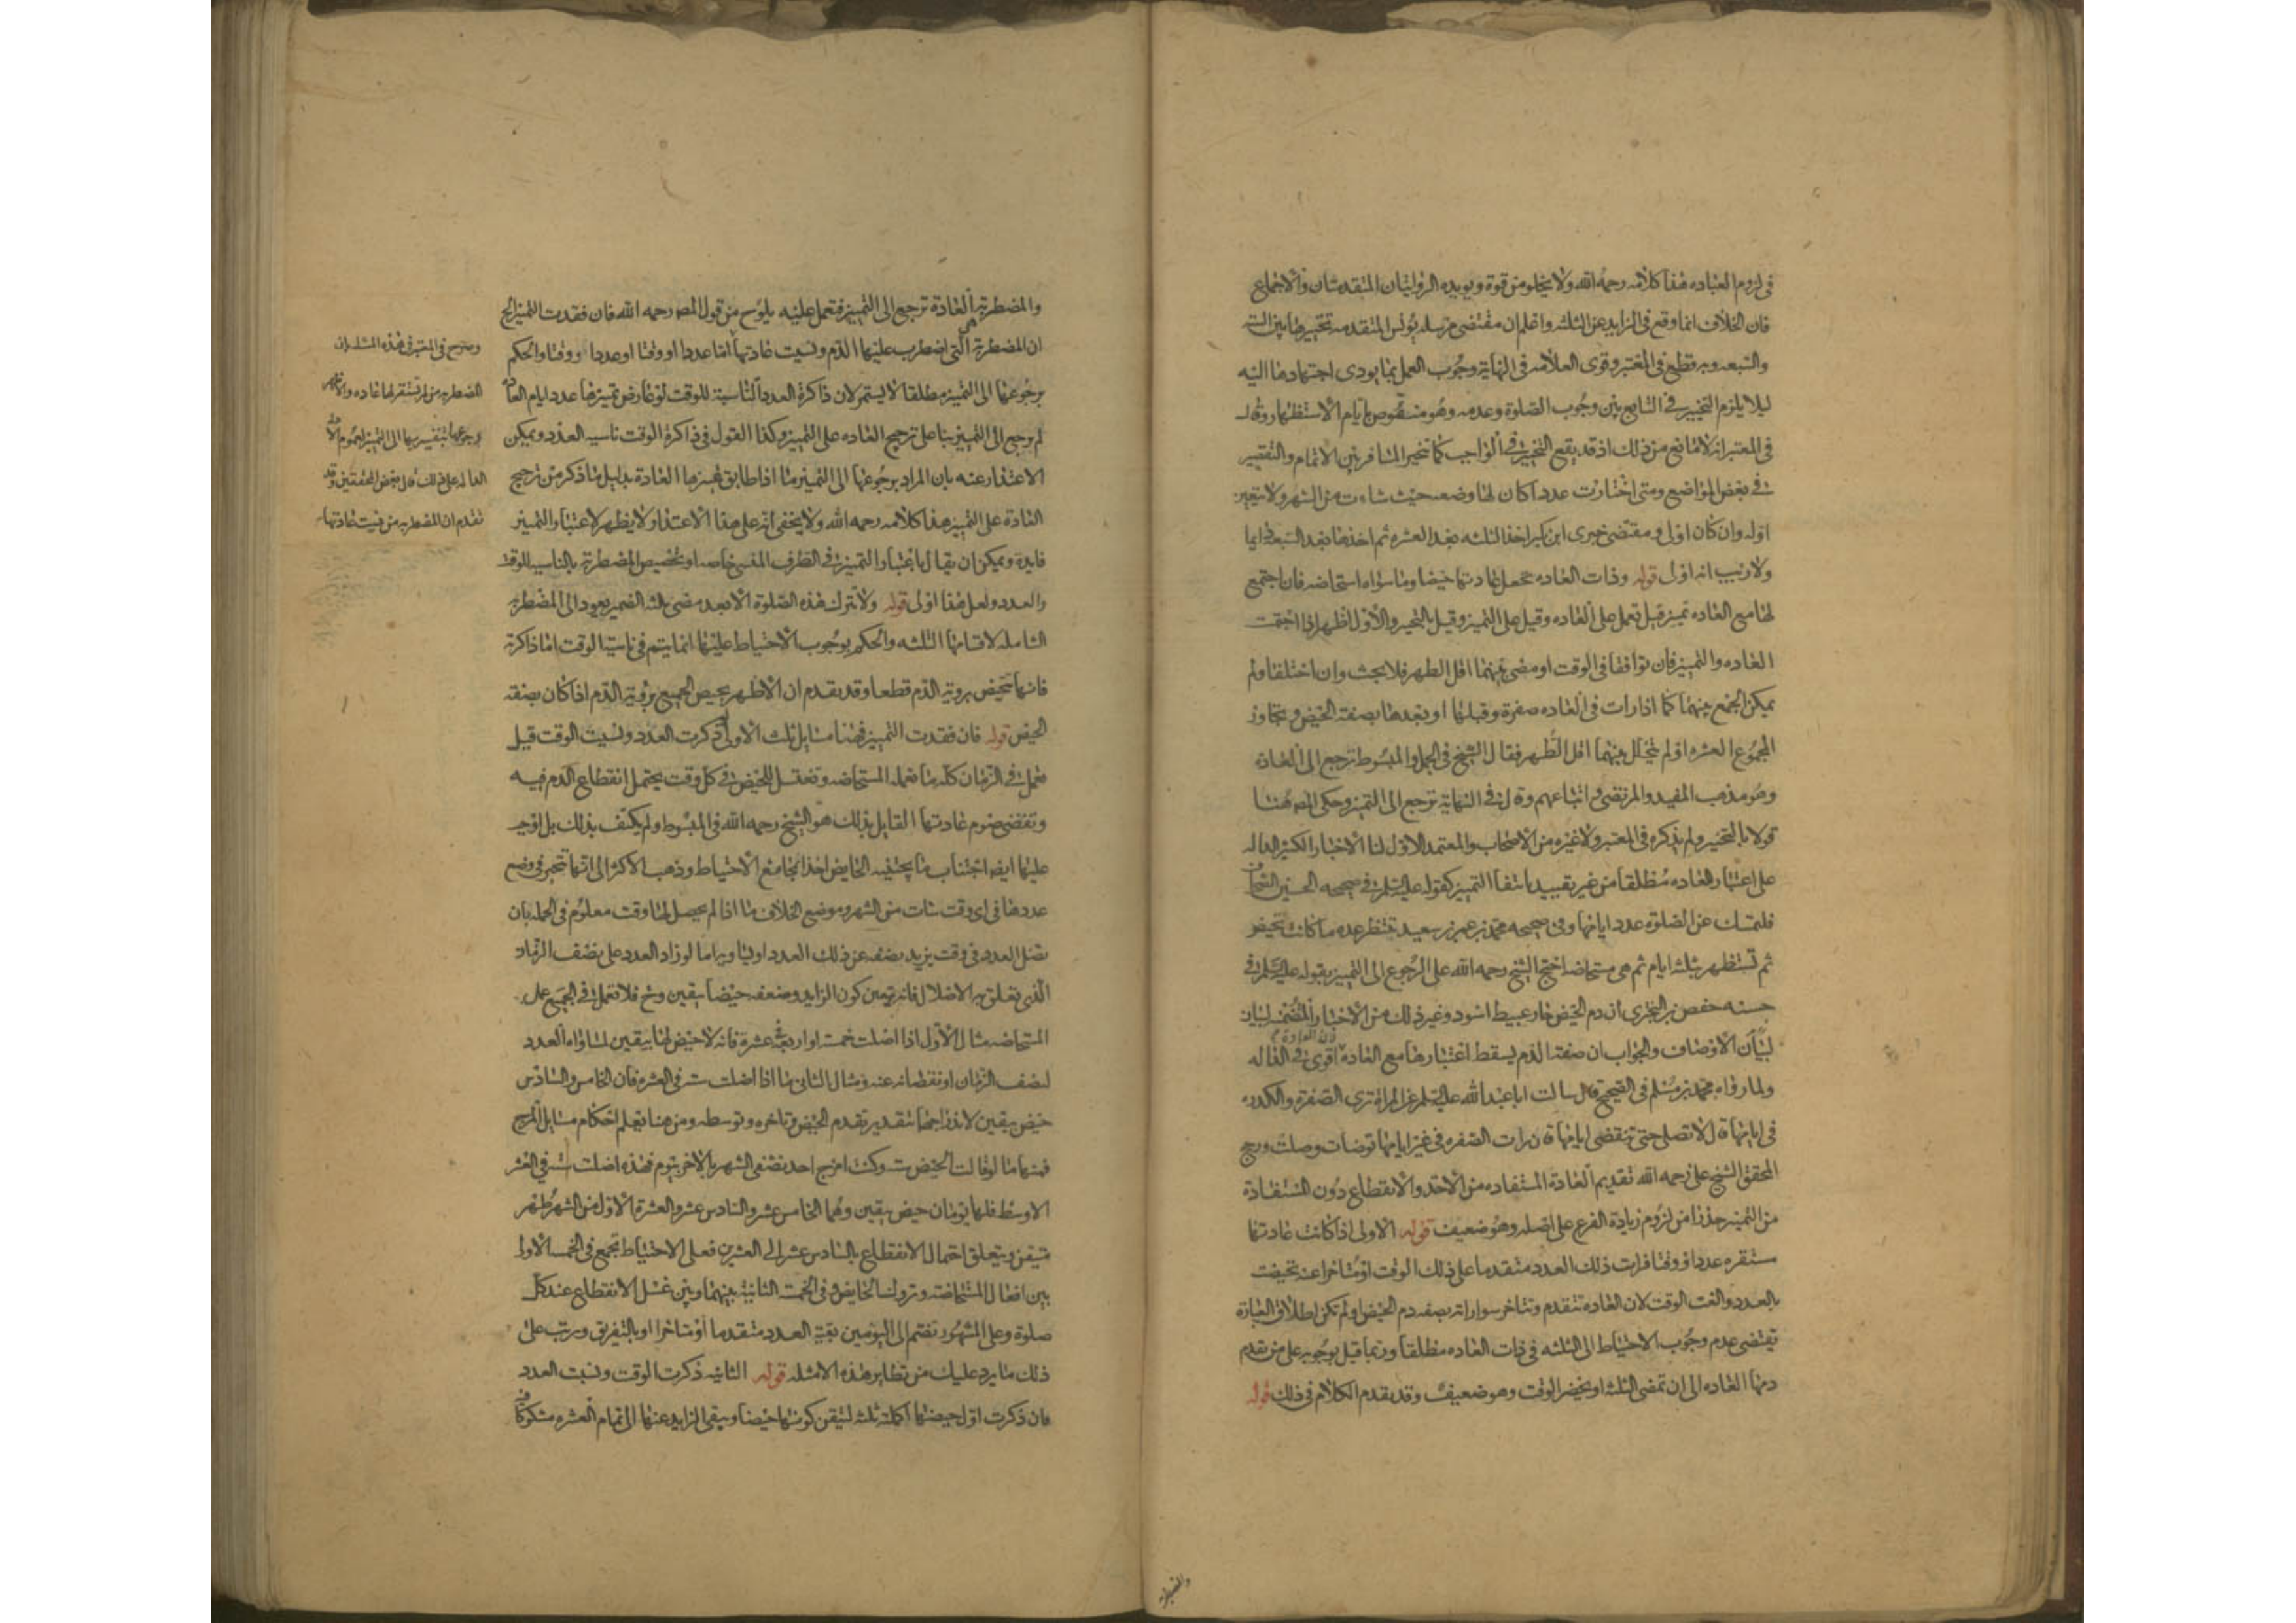 فى لزوم العباده هذا كلامه رحمه الله ولا يخلو من قوة ويويده الروايتان المتقدمتان والاجماع
فان الخلاف انما وقع فى الزايد عن الثلثه واعلم ان مقتضى مرسله يونس المتقدمه تخييرها بين الستة
والسبعه وبه قطع فى المعتبر وقوى العلامه فى النهاية وجوب العمل بما يودى اجتهادها اليه
ليلا يلزم التخيير فى السابع بين وجوب الصلوة وعدمه وهو منقوص بايام الاستظهار وقال
فى المعتبر انه لامانع من ذلك اذ قد يقع التخيير فى الواجب كما تخير المسافر بين الاتمام والتقصير
فى بعض المواضع ومتى اختارت عددا كان لها وضعه حيث شاءت من الشهر ولا يتعين
اوله وان كان اولى ومقتضى خبرى ابن بكير اخذ الثلثه بعد العشره ثم اخذها بعد السبعه دايما
ولا ريب انه اولى قوله وذات العاده تجعل عادتها حيضا وما سواه استحاضه فان اجتمع
لها مع العاده تميز قيل تعمل على العاده وقيل على التميز وقيل بالتخير والاول اظهر اذا اجتمعت
العاده والتميز فان توافقا فى الوقت او مضى بينهما اقل الطهر فلا بحث وان اختلفا ولم
يمكن الجمع بينهما كما اذا رات فى العاده صفرة وقبلها او بعدها بصفة الحيض وتجاوز
المجموع العشره او لم يتخلل بينهما اقل الطهر فقال الشيخ فى الجمل والمبسوط ترجع الى العادة
وهو مذهب المفيد والمرتضى واتباعهم وقال فى النهاية ترجع الى التميز وحكى المص هنا
قولا بالتخير ولم يذكره فى المعتبر ولا غيره من الاصحاب والمعتمد الاول لنا الاخبار الكثير الداله
على اعتبار العاده مطلقا من غير تقييد بانتفا التميز كقوله عليه السلم فى صحيحه الحسين الصحاف
فلتمسك عن الصلوة عدد ايامها وفى صحيحه محمد بن عمر بن سعيد تنتظر عده ما كانت تحيض
ثم تستظهر بثلثه ايام ثم هى مستحاضه احتج الشيخ رحمه الله على الرجوع الى التميز بقوله عليه السلم فى
حسنه حفص بن البخترى ان دم الحيض حار عبيط اسود وغير ذلك من الاخبار المتضمنه لبيان
لبيان الاوصاف والجواب ان صفة الدم يسقط اعتبارها مع العادة لان العادة اقوى فى الدلاله
ولما رواه محمد بن مسلم فى الصحيح قال سالت ابا عبد الله عليه السلم عن المراة ترى الصفرة والكدره
فى ايامها قال لا تصلى حتى تنقضى ايامها فان رات الصفره فى غير ايامها توضات وصلت ورجح
المحقق الشيخ على رحمه الله تقديم العادة المستفاده من الاخذ والانقطاع دون المستفادة
من التميز حذرا من لزوم زيادة الفرع على اصله وهو ضعيف قوله الاولى اذا كانت عادتها
مستقره عددا ووقتا فرات ذلك العدد متقدما على ذلك الوقت او متاخرا عنه تحيضت
بالعدد والغت الوقت لان العاده تتقدم وتتاخر سوا راته بصفه دم الحيض او لم تكن اطلاق العبارة
تقتضى عدم وجوب الاحتياط الى الثلثه فى ذات العاده مطلقا وربما قيل بوجوبه على من تقدم
دمها العاده الى ان تمضى الثلثه او يحضر الوقت وهو ضعيف وقد تقدم الكلام فى ذلك قوله
والمضطربة العادة ترجع الى التميز فتعمل عليه يلوح من قول المص رحمه الله فان فقدت التميز الخ
ان المضطربة هى التى اضطرب عليها الدم ونسيت عادتها اما عددا او وقتا او عددا ووقتا والحكم
برجوعها الى التميز مطلقا لا يستمر لان ذاكرة العدد الناسية للوقت لو عارض تميزها عدد ايام العادة
لم يرجع الى التميز بنا على ترجيح العاده على التميز وكذا القول فى ذاكرة الوقت ناسيه العدد ويمكن
الاعتذار عنه بان المراد برجوعها الى التميز ما اذا طابق تميزها العادة بدليل ما ذكر من ترجيح
العادة على التميز هذا كلامه رحمه الله ولا يخفى انه على هذا الاعتذار لا يظهر لاعتبار التميز
فايدة ويمكن ان يقال باعتبار التميز فى الطرف المنسى خاصه او تخصيص المضطربة بالناسيه للوقت
والعدد ولعل هذا اولى قوله ولا تترك هذه الصلوة الا بعد مضى ثلثه الضمير يعود الى المضطربة
الشامله لاقسامها الثلثه والحكم بوجوب الاحتياط عليها انما يتم فى ناسية الوقت اما ذاكرته
فانها تتحيض بروية الدم قطعا وقد تقدم ان الاظهر تحيض الجميع بروية الدم اذا كان بصفة
الحيض قوله فان فقدت التميز فهنا مسايل ثلث الاولى لو ذكرت العدد ونسيت الوقت قيل
تعمل فى الزمان كله ما تعمله المستحاضه وتغتسل للحيض فى كل وقت يحتمل انقطاع الدم فيه
وتقضى صوم عادتها القايل بذلك هو الشيخ رحمه الله فى المبسوط ولم يكتف بذلك بل اوجب
عليها ايضا اجتناب ما يجتنبه الحايض اخذا بمجامع الاحتياط وذهب الاكثر الى انها تتخير فى وضع
عددها فى اى وقت شات من الشهر وموضع الخلاف ما اذا لم يحصل لها وقت معلوم فى الجمله بان
تضل العدد فى وقت يزيد نصفه عن ذلك العدد او يساويه اما لو زاد العدد على نصف الزمان
الذى تعلق به الاضلال فانه يتعين كون الزايد وضعفه حيضا بيقين وح فلا تعمل فى الجميع عمل
المستحاضه مثال الاول اذا اضلت خمسة او اربعة فى عشرة فانه لا حيض لها بيقين لمساواه العدد
لنصف الزمان او نقصانه عنه ومثال الثانى ما اذا اضلت ستة فى العشره فان الخامس والسادس
حيض بيقين لاندراجهما بتقدير تقدم الحيض وتاخره وتوسطه ومن هنا يعلم احكام مسايل المزج
فمنها ما لو قالت الحيض ستة وكنت امزج احد نصفى الشهر بالاخر بيوم فهذه اضلت ستة فى العشر
الاوسط فلها يومان حيض بيقين وهما الخامس عشر والسادس عشر والعشرة الاول من الشهر طهر
متيقن ويتعلق احتمال الانقطاع بالسادس عشر الى العشرين فعلى الاحتياط تجمع فى الخمسة الاولى
بين افعال المستحاضة وتروك الحايض وفى الخمسة الثانية بينهما وبين غسل الانقطاع عند كل
صلوة وعلى المشهور تضم الى اليومين بقية العدد متقدما او متاخرا او بالتفريق ورتب على
ذلك ما يرد عليك من نظاير هذه الامثله قوله الثانيه ذكرت الوقت ونسيت العدد
فان ذكرت اول حيضها اكملته ثلثه لتيقن كونها حيضا ويبقى الزايد عنها الى تمام العشره مشكوكا فيه
وصرح فى المعتبر فى هذه المسئلة ان
المضطربه من لم تستقر لها عاده والاظهر
رجوعها بتفسيريها الى التميز لعموم الادلة
الداله على ذلك قال بعض المحققين وقد
تقدم ان المضطربه من نسيت عادتها
والمضطربة